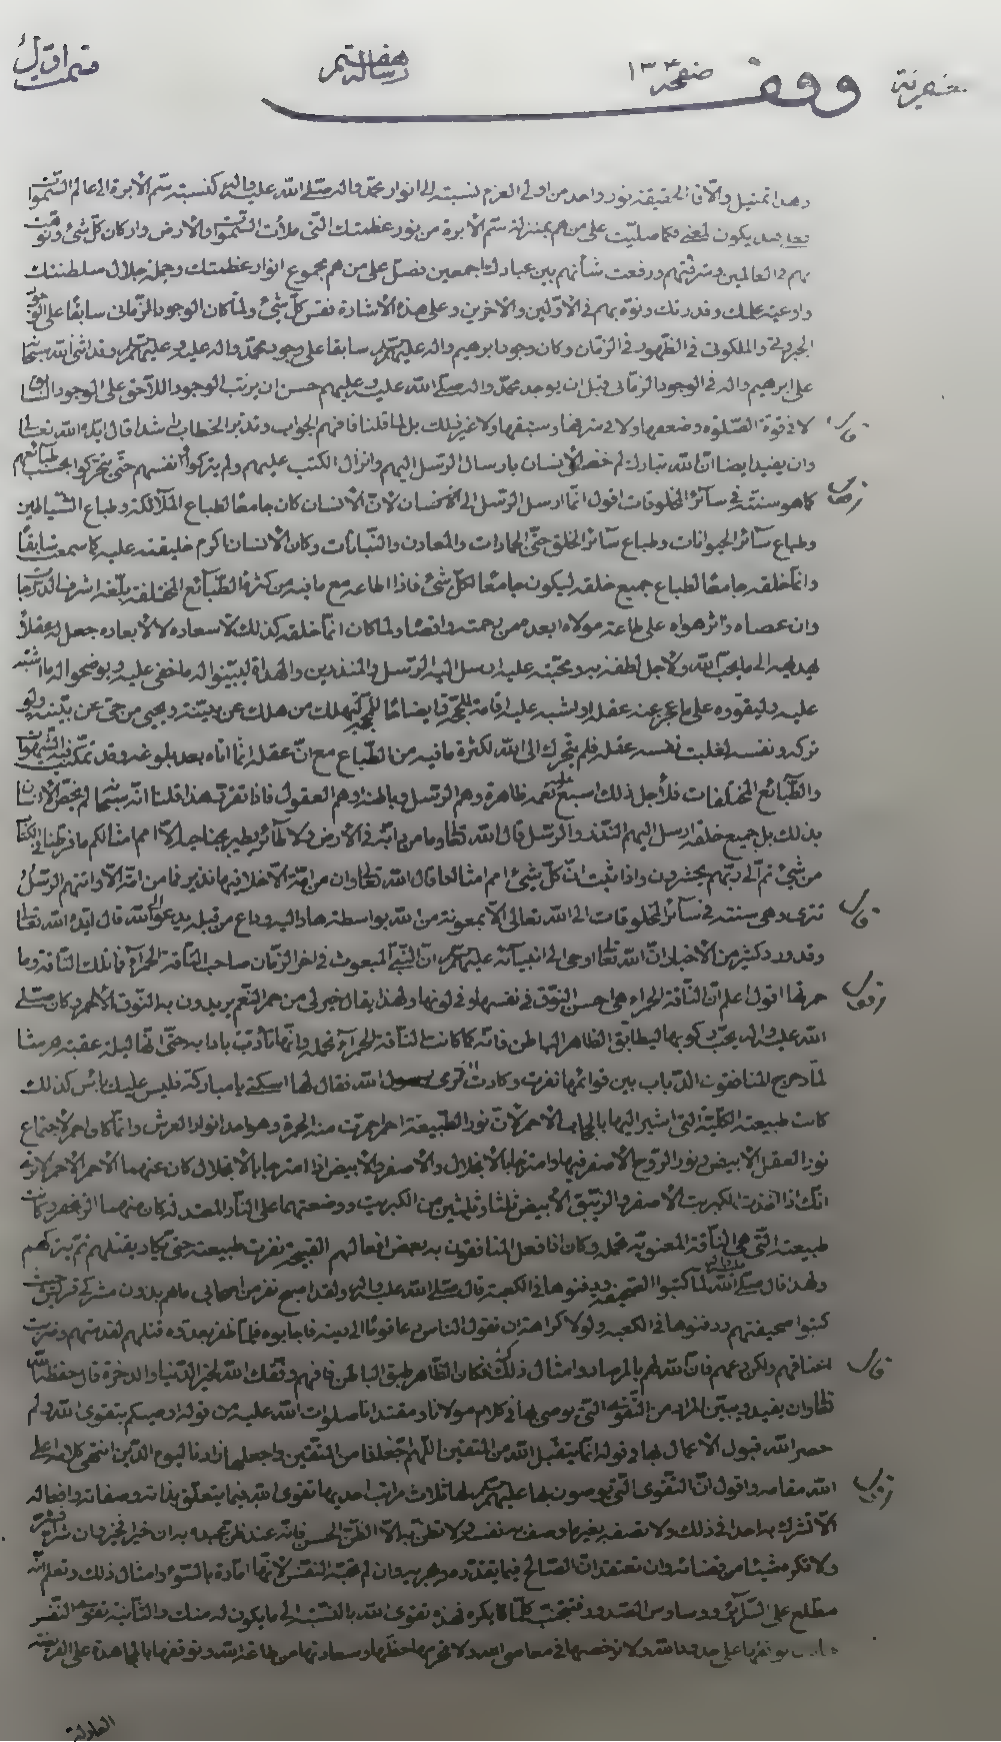 قسمت اوّل
رساله هفتم
صفحه ١٣٤
وقف
وهذا تمثيل والّا فالحقيقة نور واحد من اولي العزم نسبته الى انوار محمّد واله صلى الله عليه واله كنسبة سمّ الأبرة الى عالم السّموات
يكون المعنى كما صلّيت على من هم بمنزلة سمّ الأبرة من نور عظمتك الّتي ملأت السّموات والأرض واركان كلّ شئ ونوّهت
بهم في العالمين وشرّفتهم ورفعت شأنهم بين عبادك اجمعين فصلّ على من هم مجموع انوار عظمتك وجملة جلال سلطنتك
واوعية علمك وقدرتك ونوّه بهم في الأوّلين والأخرين وعلى هذه الأشارة فقس كلّ شئ ولمّا كان الوجود الزّماني سابقًا على
الجبروتي والملكوتي في الظّهور في الزّمان وكان وجود ابرهيم واله عليهم السّلم سابقا على وجود محمّد واله عليه وعليهم السّلم وقد اثنى الله سبحانه
على ابرهيم واله في الوجود الزّماني قبل ان يوجد محمّد واله صلى الله عليه وعليهم حسن ان يرتّب الوجود اللّاحق على الوجود السّابق
لا في قوّة الصّلوة وضعفها ولا في شرفها وسبقها ولا غير ذلك بل لما قلنا فافهم الجواب وتدبّر الخطاب قال ايّده الله تعالى
قال
وان يفيد ايضا انّ الله تبارك لم خصّ الأنسان بارسال الرّسل اليهم وانزال الكتب عليهم ولم يتركوا انفسهم حتّى يتحرّكوا بحسب طبائعهم
كما هو سنّته في سآئر المخلوقات اقول انّما ارسل الرّسل الى الأنسان لأنّ الأنسان كان جامعًا لطباع الملآئكة وطباع الشّياطين
وطباع سآئر الحيوانات وطباع سآئر الخلق حتّى الجمادات والمعادن والنّباتات وكان الأنسان اكرم خليقته عليه كما سمعت سابقًا
وانّما خلقه جامعًا لطباع جميع خلقه ليكون جامعًا لكلّ شئ فاذا اطاعه مع ما فيه من كثرة الطّبآئع المختلفة بلّغه اشرف الدّرجات
وان عصاه واثر هواه على طاعة مولاه ابعده من رحمته واقصاه ولمّا كان انّما خلقه كذلك لأسعاده لا لأبعاده جعل له عقلاً
يهديه الى ما يحبّ الله ولأجل لطفه به ومحبّته عليه ارسل اليه الرّسل والمنذرين والهداة ليبيّنوا له ما خفي عليه ويوضحوا له ما اشتبه
عليه وليقوّوه على ما عجز عنه عقله اقامة للحجّة وايضاحًا للمحجّة ليهلك من هلك عن بيّنة ويحيى من حيّ عن بيّنة ولو
تركه ونفسه لغلبت نفسه عقله فلم يتحرّك الى الله لكثرة ما فيه من الطّباع مع انّ عقله انّما اتاه بعد بلوغه وقد تمكّنت فيه الشّهوات
والطّبآئع المختلفات فلأجل ذلك اسبغ عليه نعمه ظاهرة وهم الرّسل وباطنة وهم العقول فاذا تقرّر هذا قلنا انّه سبحانه لم يخصّ الأنسان
بذلك بل جميع خلقه ارسل اليهم النّذر والرّسل قال الله تعالى وما من دابّة في الأرض ولا طائر يطير بجناحيه الّا امم امثالكم ما فرّطنا في الكتاب
من شئ ثم الى ربّهم يحشرون واذا ثبت انّ كلّ شئ امم امثالنا قال الله تعالى وان من امّة الّا خلا فيها نذير فما من امّة الّا واتتهم الرّسل
تترى وهي سنّته في سآئر المخلوقات الى الله تعالى الّا بمعونة من الله بواسطة هاد اليه وداع من قبله يدعو الى الله قال ايّده الله تعالى
قال
وقد ورد كثير من الأخبار انّ الله تعالى اوحى الى انبيآئه عليهم السّلم انّ النّبيّ المبعوث في اخر الزّمان صاحب النّاقة الحمرآء فما تلك النّاقة وما
حمرتها اقول اعلم انّ النّاقة الحمراء هي احسن النّوق في نفسها وفي لونها ولهذا يقال خير لي من حمر النّعم يريدون به النّوق الأحمر وكان صلى
الله عليه واله يحبّ ركوبها ليطابق الظاهر الباطن فانّه كما كانت النّاقة الحمرآء تحمله وانّها تأدّبت بادابه حتّى انّها ليلة عقبة هرشا
لمّا دحرج المنافقون الدّباب بين قوائمها نفرت وكادت ترمي رسول الله فقال لها اسكني يا مباركة فليس عليك بأس كذلك
كانت طبيعته الكلّيّة التي اشير اليها بالحجاب الأحمر لأنّ نور الطّبيعة احمر احمرّت منه الحمرة وهو احد انوار العرش وانّما كان احمر لاجتماع
نور العقل الأبيض ونور الرّوح الأصفر فيها وامتزجا بالأنحلال والأصفر والأبيض اذا امتزجا بالأنحلال كان عنهما الأحمر لأنّه
انّك اذا اخذت الكبريت الأصفر والزّيبق الأبيض ثلثا وثلثين من الكبريت ووضعتهما على النّار المعتدلة كان منهما الزّنجفر وكانت
طبيعته الّتي هي النّاقة المعنويّة تحمله وكان اذا فعل المنافقون به بعض افعالهم القبيحة نفرت طبيعته حتّى يكاد يقتلهم ثمّ يتركهم
ولهذا قال صلى الله عليه واله لمّا كتبوا الصّحيفة ودفنوها في الكعبة قال صلى الله عليه واله ولقد اصبح نفر من اصحابي ما هم بدون مشركي قريش حيث
كتبوا صحيفتهم ودفنوها في الكعبة ولولا كراهة ان تقول النّاس دعا قومًا الى دينه فاجابوه فلمّا ظفر بعدوّه قتلهم لقدّمتهم وضربت
اعناقهم ولكن دعهم فانّ الله لهم بالمرصاد وامثال ذلك فكان الظّاهر طبق الباطن فافهم وفّقك الله لخير الدّنيا والاخرة قال حفظه الله
قال
تعالى وان يفيد ويبيّن المراد من التّقوى الّتي يوصى بها في كلام مولانا ومقتدانا صلوات الله عليه من قوله اوصيكم بتقوى الله ولم
حصر الله قبول الأعمال بها وقوله انّما يتقبّل الله من المتّقين اللّهمّ اجعلنا من المتّقين واجعلها زادنا ليوم الدّين انتهى كلامه اعلى
الله مقامه واقول انّ التّقوى الّتي يوصون بها عليهم السّلم لها ثلاث مراتب احديها تقوى الله فيما يتعلّق بذاته وصفاته وافعاله
الّا تشرك به احدا في ذلك ولا تصفه بغير ما وصف به نفسه ولا تظنّ به الّا الظّنّ الحسن فانّه عند ظنّ عبده به ان خيرا فخير وان شرّا
ولا تكره شيئا من قضائه وان تعتقد انّ الصّالح فيما يقدّره ويجريه وان لم تحبّه النّفس لأنّها امّارة بالسّوء وامثال ذلك وتعلم انّه
مطّلع على السّرآئر ووساوس الصّدور فتجتنب كلّما يكره فهذه تقوى الله بالنّسبة الى ما يكون له منك والثّانية تقوى النّفس
على حدود الله ولا ترخّصها في معاصي الله ولا تحرمها حظّها وسعادتها من طاعة الله وتوقفها بالمجاهدة على
العادلة